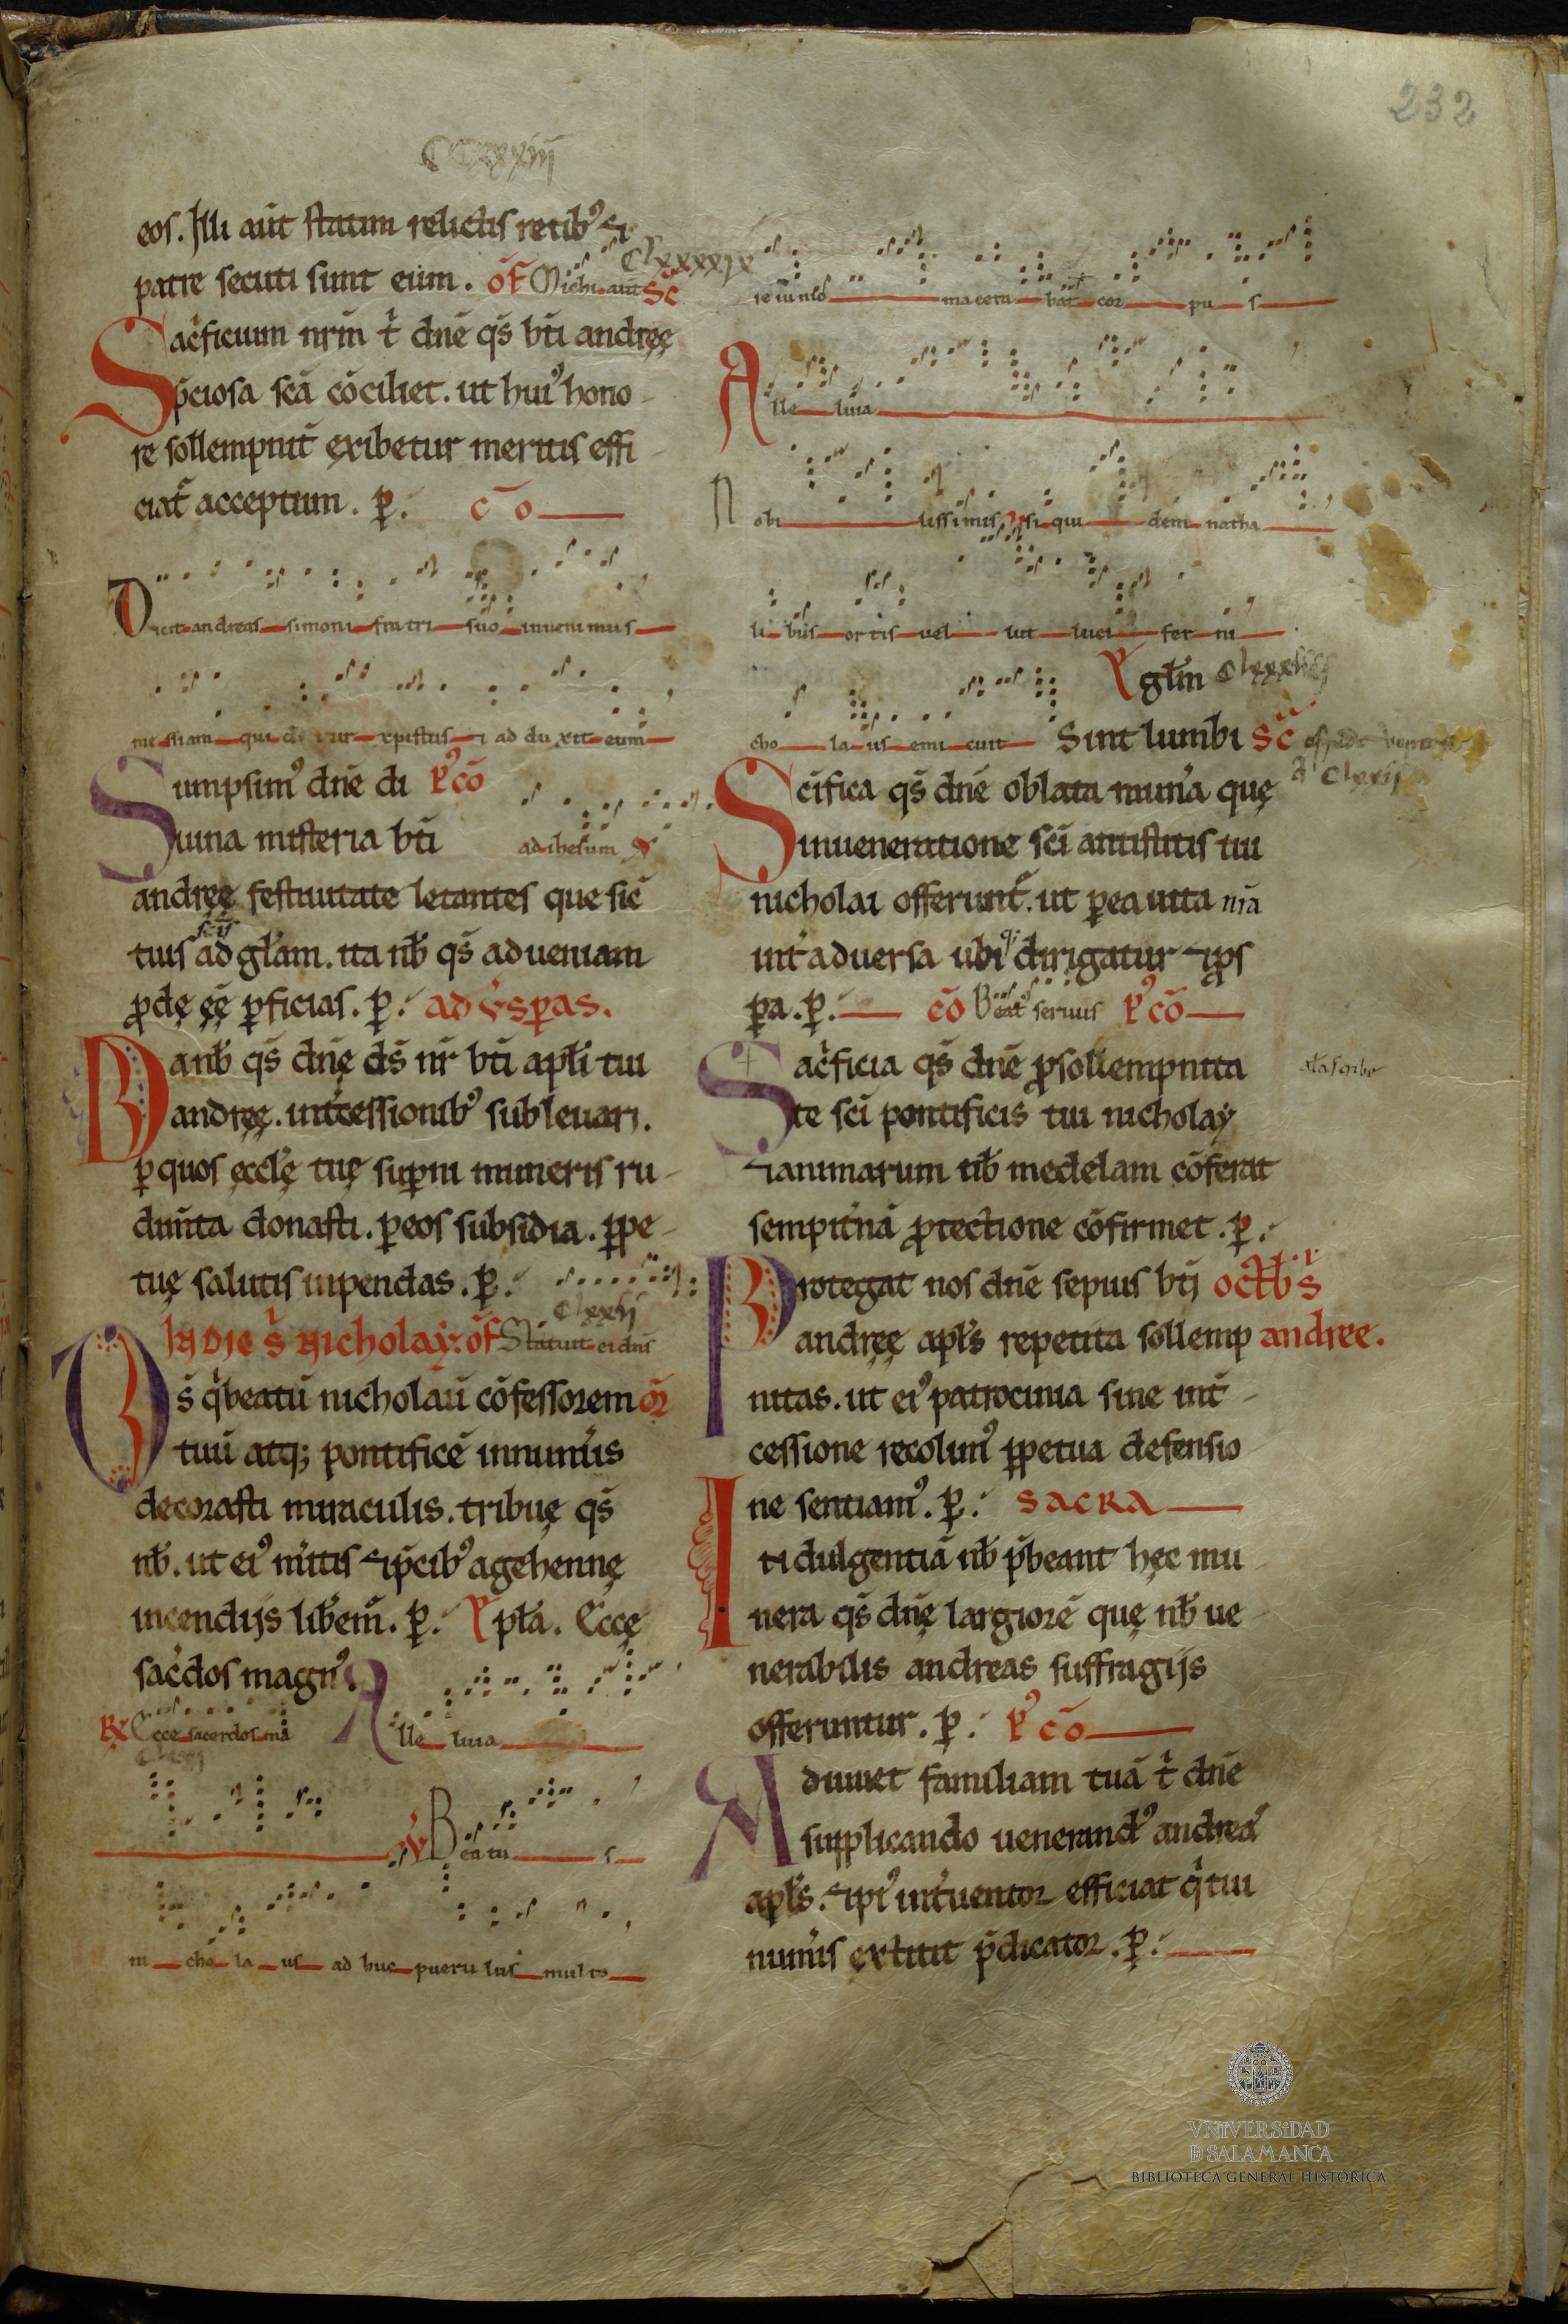 232
CCxxxiij
eos. Illi aūt statim relictis retibꝰ ⁊
patre secuti sunt eum. oƒ Michi aūt Sc̄
Clxxxxix
Sac̉ficium nr̄m t̉ dn̄e qs̄ bt̄i andreę
p̄ciosa scā cōciliet. ut huiꝰ hono
re sollempnit̉ exibetur meritis effi
ciat̉ acceptum. ꝑ. c̄o
Dicit andreas simoni fratri suo inuenimus
messiam qui dicitur xpistus ⁊ ad duxit eum
Sumpsimꝰ dn̄e di pꝰcō
uina misteria bt̄i ad ihesum
andreę festiuitate letantes que sic̄
tuis scīs ad gl̄am. ita nb̄ qs̄ ad ueniam
ꝓdę eē ꝑficias. ꝑ. ad ūsꝑas.
Da nb̄ qs̄ dn̄ę ds̄ nr̄ bt̄i apl̄i tui
andreę. int̉cessionibꝰ subleuari.
ꝑ quos ęccl̄ę tuę suꝑni muneris ru
dim̄ta donasti. ꝑ eos subsidia. ꝑpe
tuę salutis inpendas. ꝑ.
Clxxij
In die s̄ nicholay. oƒ Statuit ei dn̄s
Ds̄ q̉ beatū nicholaū cōfessorem or̄
tuū atq; pontificē innum̉is
decorasti miraculis. tribuę qs̄
nb̄. ut eiꝰ m̉itis ⁊ p̄cibꝰ a gehennę
incendijs lib̉em̉. ꝑ. Ep̄la. Ecce
sac̉dos magnꝰ. Alle luia
℟ Ecce sacerdos ma
℣ Beatu s
ni cho la us ad huc pueru lus multo
ieiunio macera bat cor pu s
Alle luia
Nobi lissimis siqui dem natha
li bus ortis uel ut luci fer ni
Eu̅glm̄
cho la us emi cuit Sint lumbi Sc̄
Sc̄ifica qs̄ dn̄e oblata mun̉a quę
in ueneratione sc̄i antistitis tui
nicholai offerunt̉. ut ꝑ ea uita nr̄a
int̉ aduersa ubiqꝫ dirigatur ⁊ ꝓs
ꝑa. ꝑ. cō Beat̉ seruus pꝰcō
Sac̉ficia qs̄ dn̄e ꝓ sollempnita
te sc̄i pontificis tui nicholay
⁊ animarum nb̄ medelam cōferat
sempit̉nā ꝓtectione cōfirmet. ꝑ.
Protegat nos dn̄e sepius bt̄i octb̄ s̄
andreę apl̄s repetita sollemp andree.
nitas. ut eiꝰ patrocinia sine int̉
cessione recolimꝰ ꝑpetua defensio
ne sentiamꝰ. ꝑ. sacra
Indulgentiā nb̄ p̄beant hęc mu
nera qs̄ dn̄ę largiorē quę nb̄ ue
nerabilis andreas suffragijs
offeruntur. ꝑ. pꝰ cō
Adiuuet familiam tuā t̉ dn̄e
supplicando uenerandꝰ andreas
apl̄s. ⁊ piꝰ int̉uentor efficiat̉ q̉ tui
numinis extitit p̄dicator. ꝑ.
VNIVERSIDAD
D SALAMANCA
BIBLIOTECA GENERAL HISTÓRICA